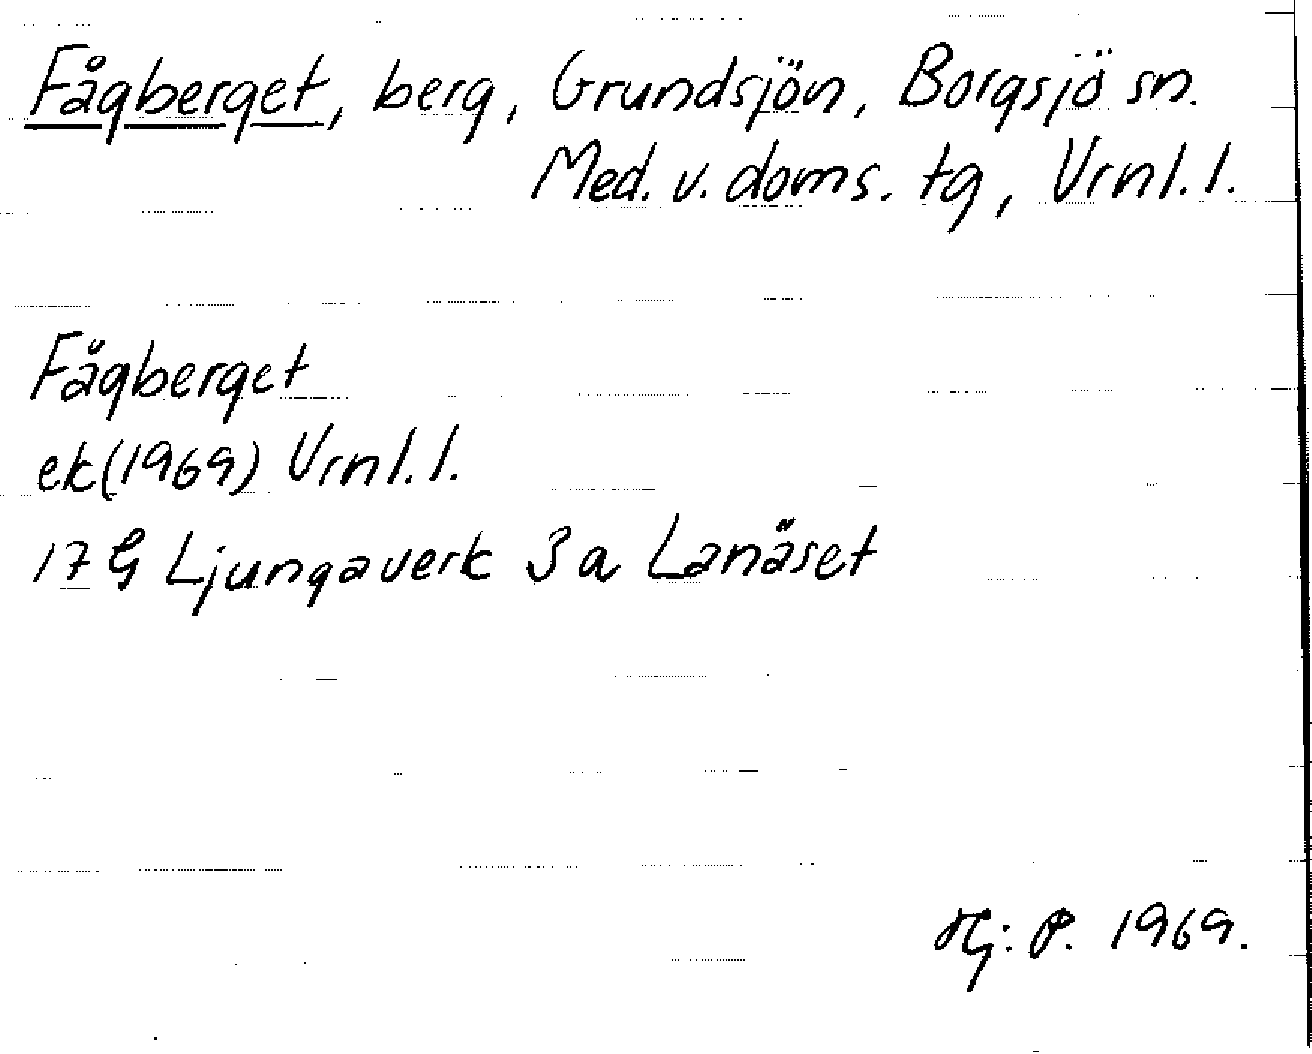 Fågberget, berg, Grundsjön, Borgsjö sn.
Med. v. doms. tg, Vrnl. l.
Fågberget
ek (1969) Vrnl. l.
17 G Ljungaverk 3 a Lanäset
Hj: P. 1969.